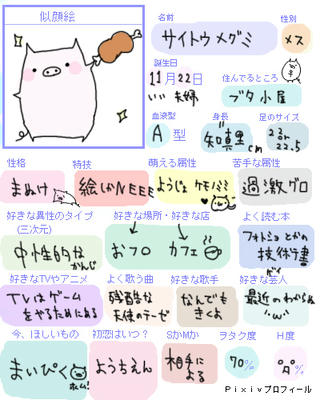 似顔絵
名前
性別
サイトウ メグミ
メス
誕生日
11月22日
いい 夫婦
住んでるところ
ブタ小屋
血液型
身長
足のサイズ
A型
知真里 cm
22.5
性格
特技
萌える属性
苦手な属性
まぬけ
絵しかNEEE
ようじょ ケモノミミ
過激グロ
好きな異性のタイプ
(三次元)
好きな場所・好きな店
よく読む本
中性的な
かんじ
おフロ カフェ
フォトショとかの
技術書
好きなTVやアニメ
よく歌う曲
好きな歌手
好きな芸人
TVはゲーム
をやるためにある
残酷な
天使のテーゼ
なんでも
きくよ
最近のわからん
今、ほしいもの
初恋はいつ?
SかMか
ヲタク度
H度
まいぴく
ようちえん
相手に
よる
70%
Pixivプロフィール